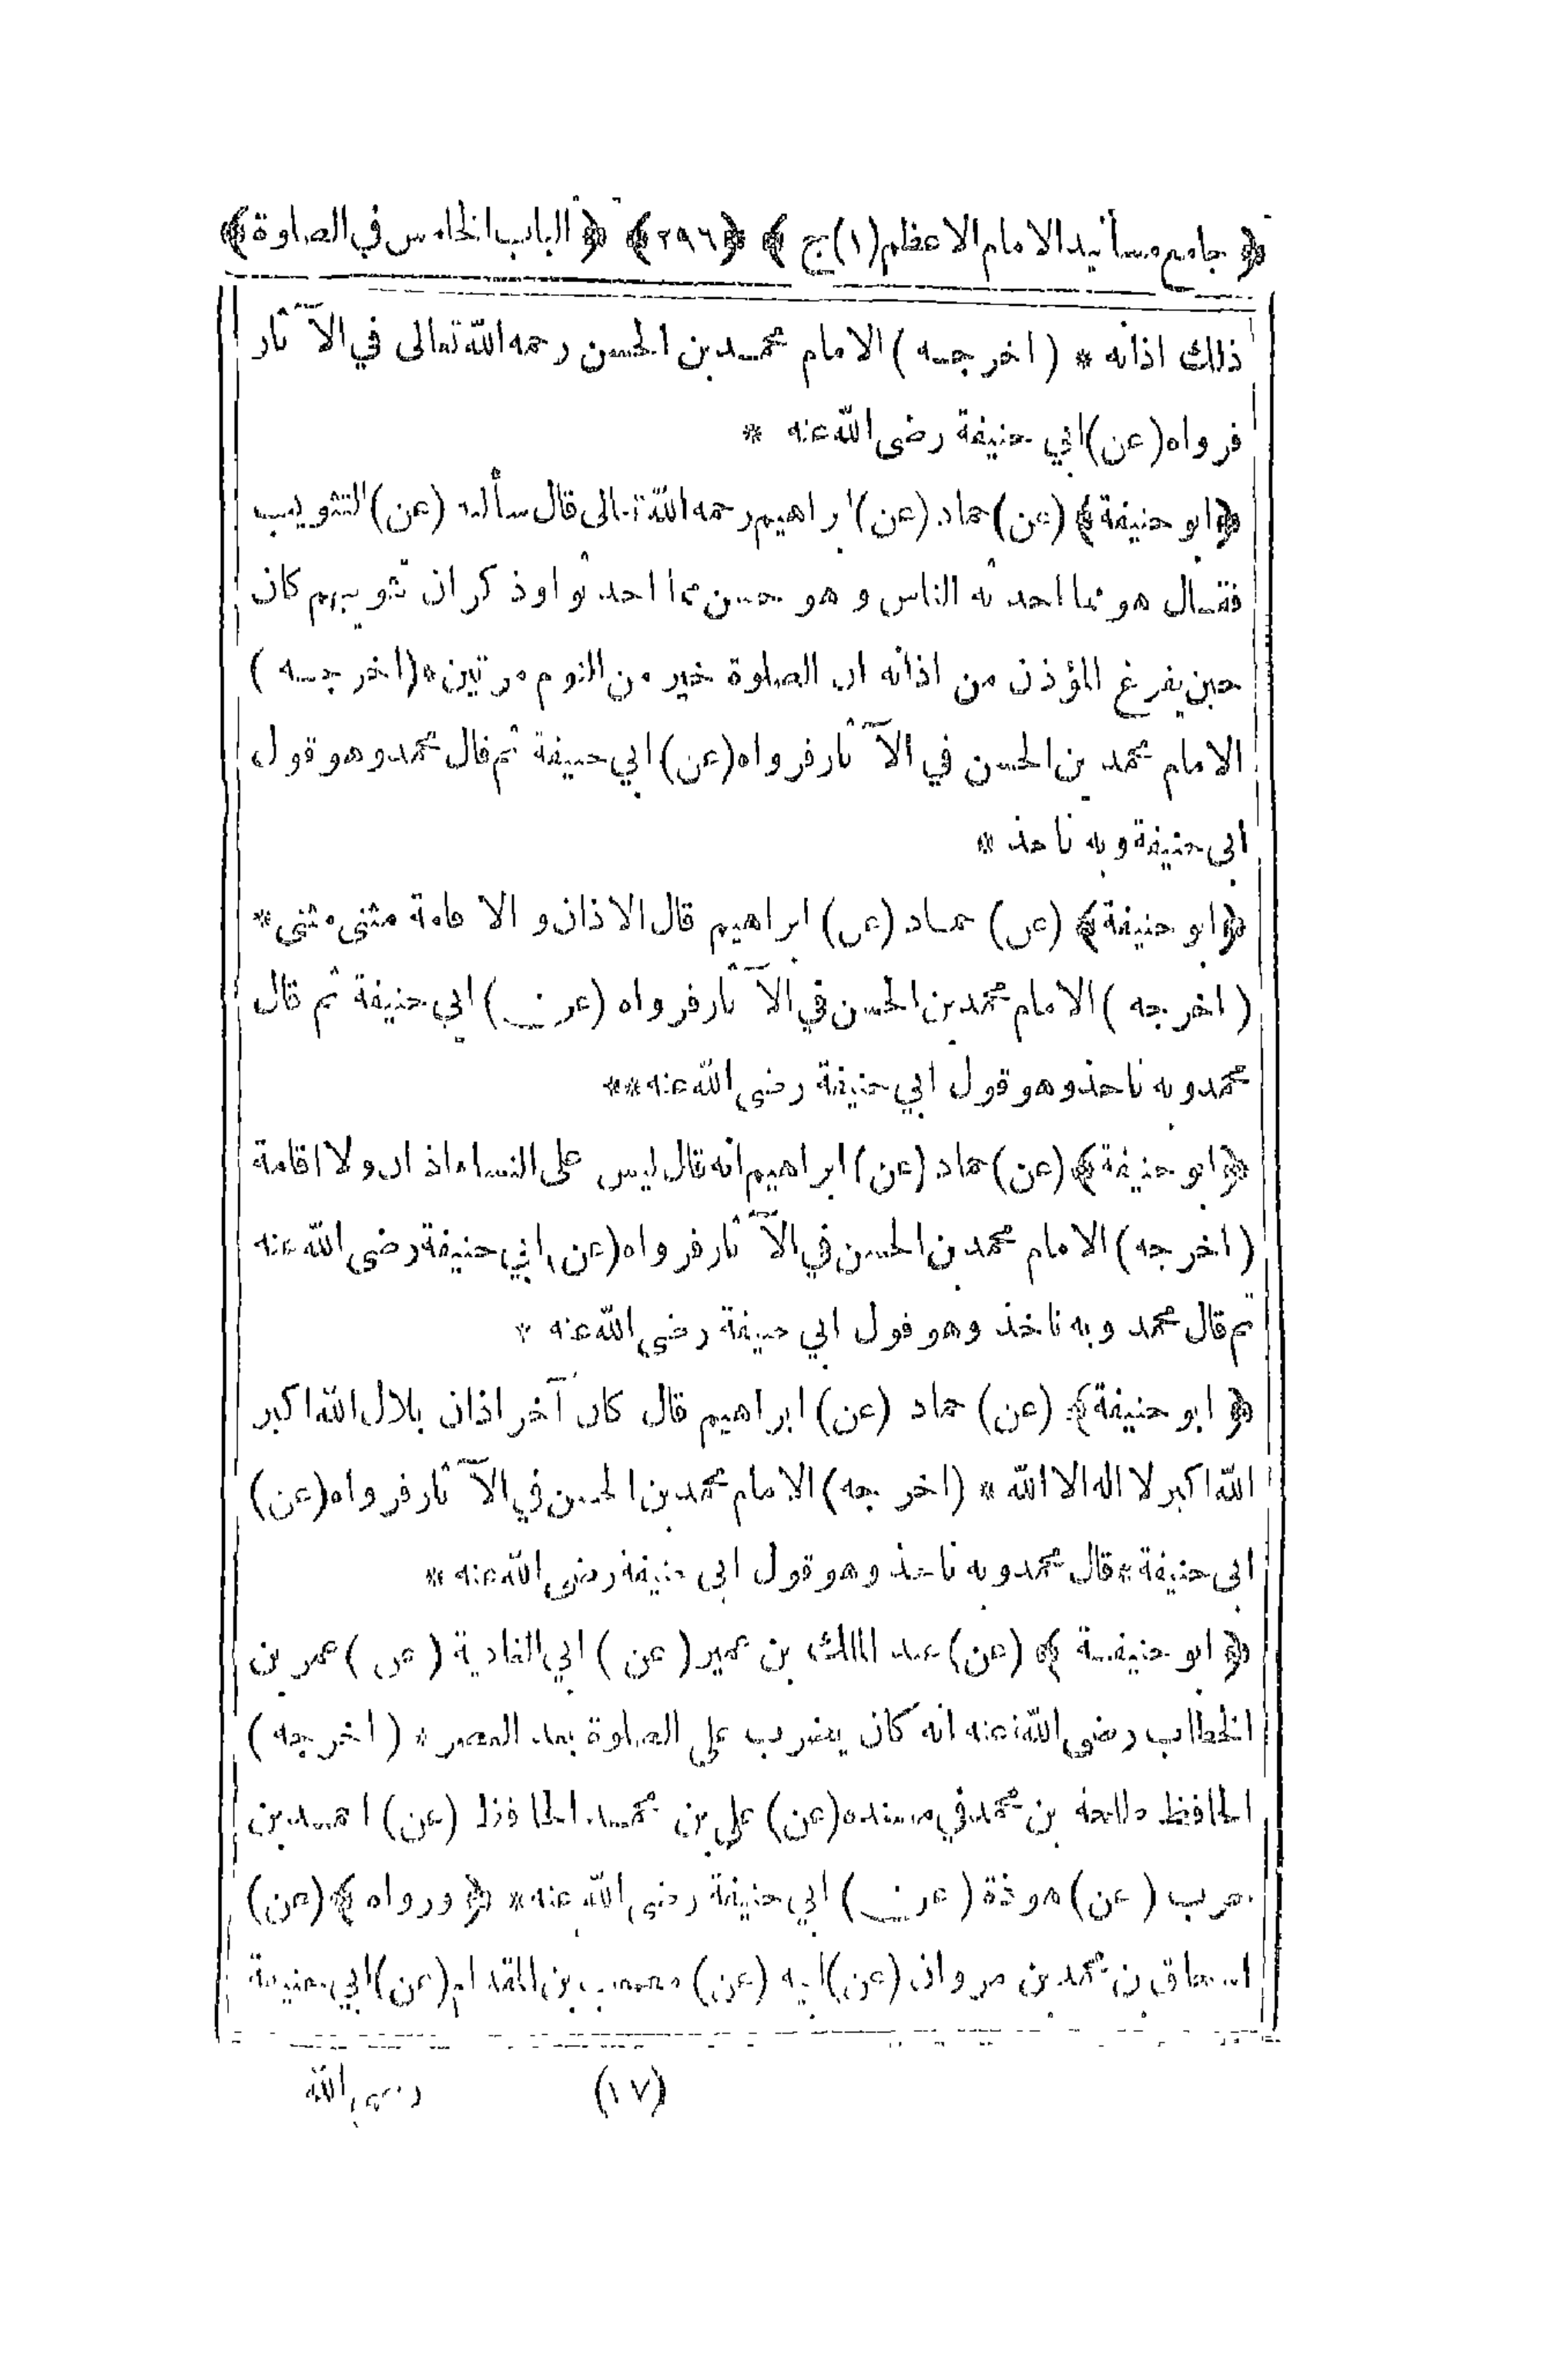 ﴿ جامع مسانيد الامام الاعظم (١) ج ﴾ ﴿٢٩٦﴾ ﴿ الباب الخامس في الصلوة ﴾
ذلك اذانه * ( اخرجه ) الامام محمد بن الحسن رحمه الله تعالى في الآثار
فرواه (عن) ابي حنيفة رضى الله عنه *
﴿ابو حنيفة﴾ (عن) حماد (عن) ابراهيم رحمه الله تعالى قال سألته (عن) التثويب
فقال هو مما احدثه الناس وهو حسن مما احدثوا وذكر ان تثويبهم كان
حين يفرغ المؤذن من اذانه ان الصلوة خير من النوم مرتين * (اخرجه )
الامام محمد بن الحسن في الآثار فرواه (عن) ابي حنيفة ثم قال محمد وهو قول
ابى حنيفة وبه ناخذ *
﴿ابو حنيفة﴾ (عن) حماد (عن) ابراهيم قال الاذان و الاقامة مثنى مثنى *
( اخرجه ) الامام محمد بن الحسن في الآثار فرواه (عن) ابي حنيفة ثم قال
محمد وبه ناخذ وهو قول ابي حنيفة رضى الله عنه **
﴿ابو حنيفة﴾ (عن) حماد (عن) ابراهيم انه قال ليس على النساء اذان ولا اقامة
( اخرجه ) الامام محمد بن الحسن في الآثار فرواه (عن) ابي حنيفة رضى الله عنه
ثم قال محمد وبه ناخذ وهو قول ابي حنيفة رضى الله عنه *
﴿ ابو حنيفة﴾ (عن) حماد (عن) ابراهيم قال كان آخر اذان بلال الله اكبر
الله اكبر لا اله الا الله * (اخرجه) الامام محمد بن الحسن في الآثار فرواه (عن)
ابى حنيفة * قال محمد وبه ناخذ وهو قول ابى حنيفة رضى الله عنه *
﴿ ابو حنيفة ﴾ (عن) عبد الملك بن عمير (عن ) ابي الغادية ( عن ) عمر بن
الخطاب رضى الله عنه انه كان يضرب على الصلوة بعد العصر * ( اخرجه )
الحافظ طلحة بن محمد في مسنده (عن) علي بن محمد الحافظ (عن) احمد بن
حرب ( عن) هوذة ( عن ) ابي حنيفة رضى الله عنه * ﴿ ورواه ﴾ (عن)
اسحاق بن محمد بن مروان (عن) ابيه (عن) مصعب بن المقدام (عن) ابي حنيفة
(١٧) رضى الله